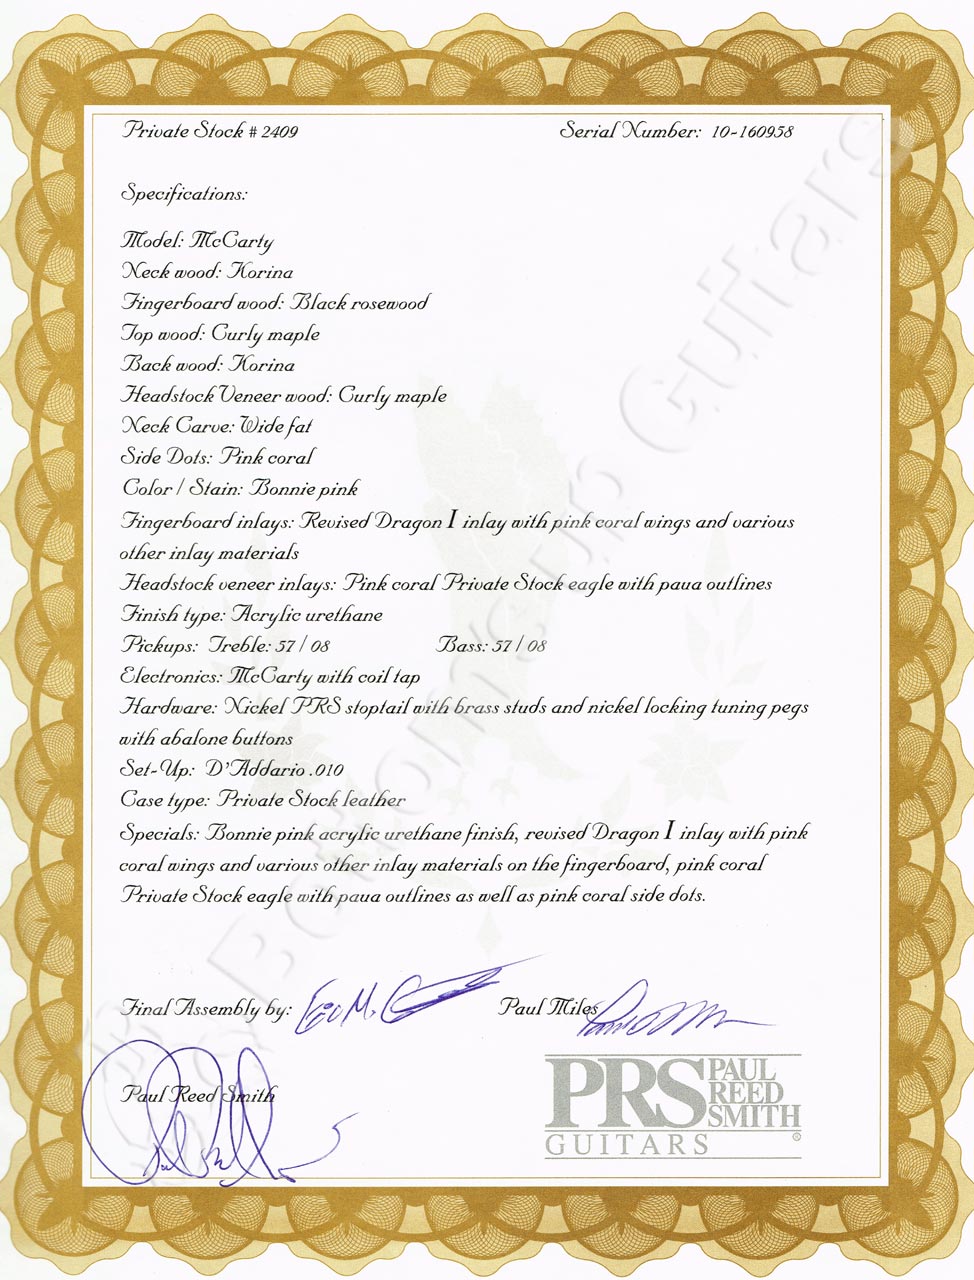 Private Stock # 2409 Serial Number: 10-160958
Specifications:
Model: McCarty
Neck wood: Korina
Fingerboard wood: Black rosewood
Top wood: Curly maple
Back wood: Korina
Headstock Veneer wood: Curly maple
Neck Carve: Wide fat
Side Dots: Pink coral
Color / Stain: Bonnie pink
Fingerboard inlays: Revised Dragon I inlay with pink coral wings and various
other inlay materials
Headstock veneer inlays: Pink coral Private Stock eagle with paua outlines
Finish type: Acrylic urethane
Pickups: Treble: 57 / 08 Bass: 57 / 08
Electronics: McCarty with coil tap
Hardware: Nickel PRS stoptail with brass studs and nickel locking tuning pegs
with abalone buttons
Set-Up: D'Addario .010
Case type: Private Stock leather
Specials: Bonnie pink acrylic urethane finish, revised Dragon I inlay with pink
coral wings and various other inlay materials on the fingerboard, pink coral
Private Stock eagle with paua outlines as well as pink coral side dots.
Final Assembly by: Paul Miles
Paul Reed Smith
PRS PAUL REED SMITH
GUITARS ®
Guitars